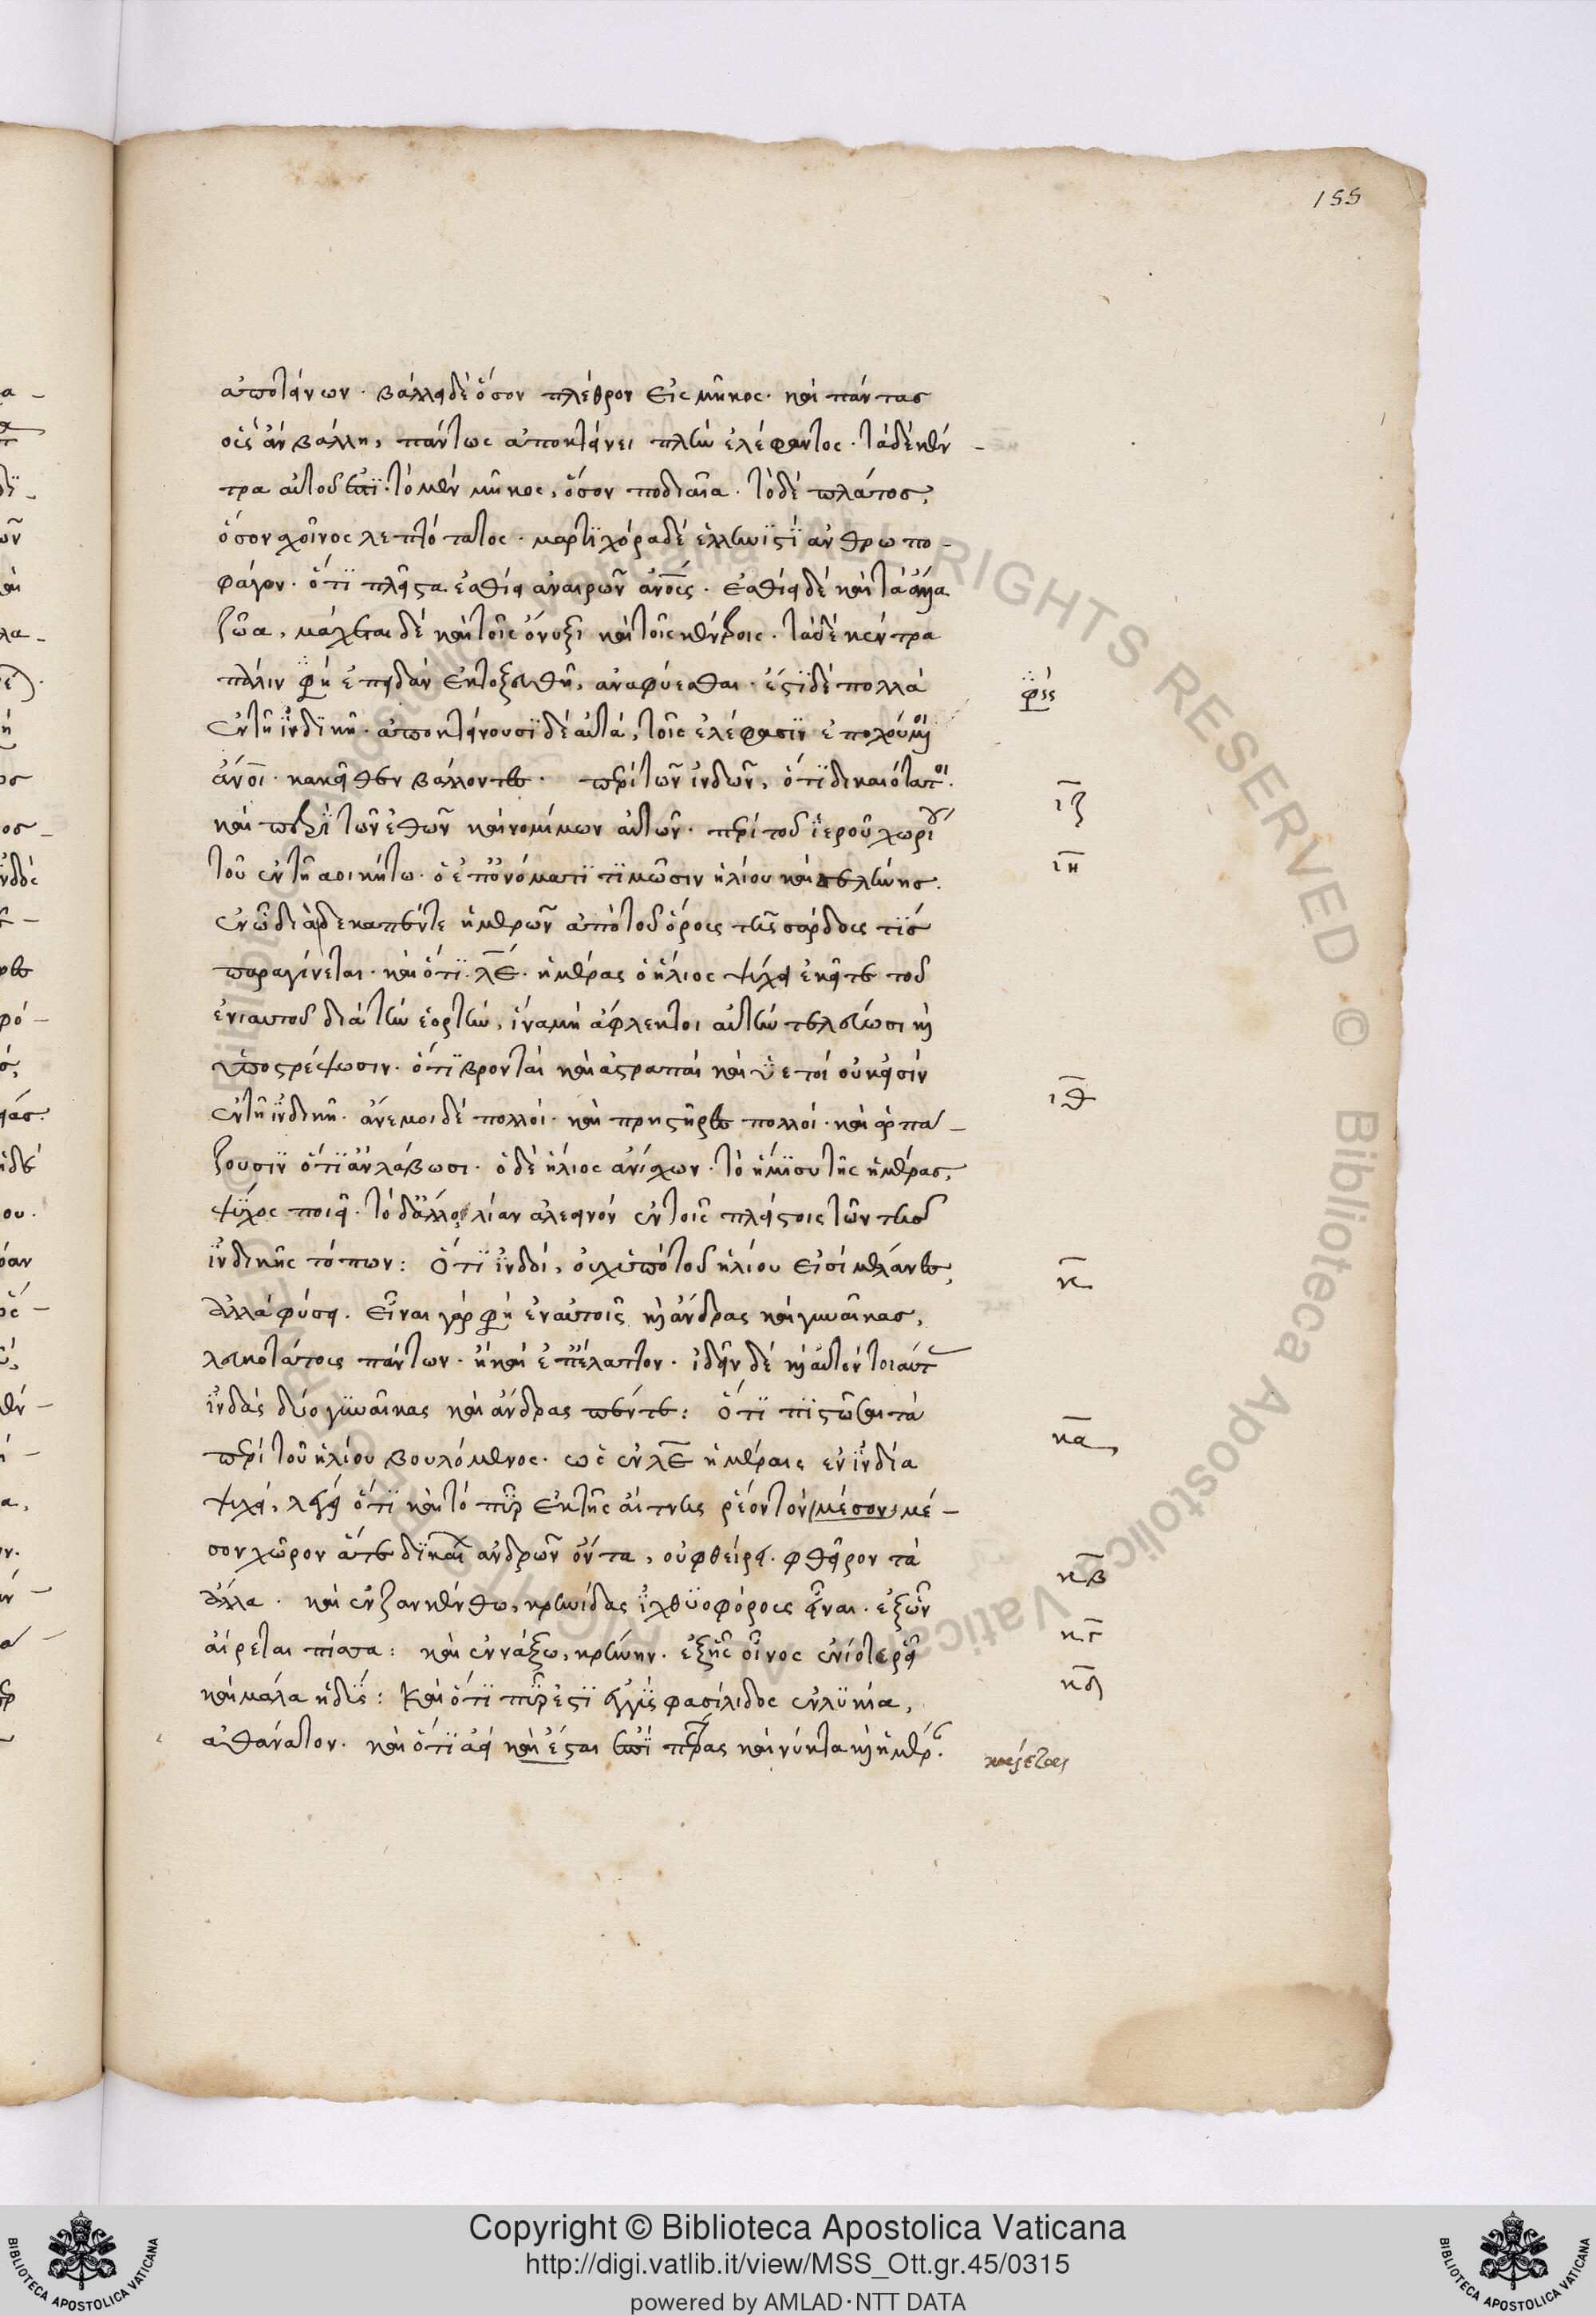 155
ἀποτείνων· βάλλει δὲ ὅσον πλέθρον εἰς μῆκος· καὶ πάντας
οὓς ἂν βάλλη, πάντως ἀποκτείνει πλὴν ἐλέφαντος· τὰ δὲ κέν-
τρα αὐτοῦ ἐστὶ· τὸ μὲν μῆκος, ὅσον ποδιαῖα· τὸ δὲ πλάτος,
ὅσον σχοῖνος λεπτότατος· μαρτιχόρα δὲ ἑλληνιστὶ ἀνθρωπο-
φάγον· ὅτι πλεῖστα ἐσθίει ἀναιρῶν ἀνους· ἐσθίει δὲ καὶ τὰ ἄλλα
ζῶα, μάχεται δὲ καὶ τοῖς ὄνυξι καὶ τοῖς κέντροις· τὰ δὲ κέντρα
πάλιν φη ἐπειδὰν ἐκτοξευθῆ, ἀναφύεσθαι· ἔστι δὲ πολλὰ
φις
ἐν τῆ ἰνδικῆ· ἀποκτείνουσι δὲ αὐτὰ, τοῖς ἐλέφασιν ἐποχούμενοι
ἄνοι· κἀκεῖθεν βάλλοντες· περὶ τῶν ἰνδῶν, ὅτι δικαιότατοι·
ιζ
καὶ περὶ τῶν ἐθῶν καὶ νομίμων αὐτῶν· περὶ τοῦ ἱεροῦ χωρίου
τοῦ ἐν τῆ ἀοικήτω· ὃ ἐπ' ὀνόματι τιμῶσιν ἡλίου καὶ σελήνης.
ιη
ἐν ὧ διὰ δεκαπέντε ἡμερῶν ἀπὸ τοῦ ὄρους τῆς σάρδους τὶς
παραγίνεται· καὶ ὅτι λε· ἡμέρας ὁ ἥλιος ψύχει ἐκεῖσε τοῦ
ἐνιαυτοῦ διὰ τὴν ἑορτὴν, ἵνα μὴ ἄφλεκτοι αὐτὴν τελέσωσι καὶ
ὑποστρέψωσιν· ὅτι βρονταὶ καὶ ἀστραπαὶ καὶ ὑετοὶ οὐκ εἰσὶν
ιθ
ἐν τῆ ἰνδικῆ· ἄνεμοι δὲ πολλοὶ· καὶ πρηστῆρες πολλοὶ· καὶ ἁρπά-
ζουσιν ὅτι ἂν λάβωσι· ὁ δὲ ἥλιος ἀνίσχων· τὸ ἥμισυ τῆς ἡμέρας,
ψῦχος ποιεῖ· τὸ δ' ἄλλο, λίαν ἀλεεινόν ἐν τοῖς πλείστοις τῶν τῆς
ἰνδικῆς τόπων: Ὅτι ἰνδοὶ, οὐχ ὑπὸ τοῦ ἡλίου εἰσὶ μέλανες,
κ
ἀλλὰ φύσει. εἶναι γάρ φη ἐν αὐτοῖς καὶ ἄνδρας καὶ γυναῖκας,
λευκοτάτους πάντων· εἰ καὶ ἐπ' ἔλαττον· ἰδεῖν δὲ καὶ αὐτὸν τοιαύτας
ἰνδὰς δύο γυναῖκας καὶ ἄνδρας πέντε: Ὅτι πιστῶσαι τὰ
κα
περὶ τοῦ ἡλίου βουλόμενος· ὡς ἐν λε ἡμέραις ἐν ἰνδία
ψύχει, λέγει ὅτι καὶ τὸ πῦρ ἐκ τῆς αἴτνης ῥέον τὸν (μέσον) μέ-
σον χῶρον ἅτε δικαίων ἀνδρῶν ὄντα, οὐ φθείρει· φθεῖρον τὰ
κβ
ἄλλα· καὶ ἐν ζακύνθω, κρηνίδας ἰχθυοφόρους εἶναι· ἐξ ὧν
αἴρεται πίσσα: καὶ ἐν νάξω, κρήνην· ἐξ ἧς οἶνος ἐνίοτε ῥεῖ
κγ
καὶ μάλα ἡδύς: Καὶ ὅτι πῦρ ἐστὶ ἐγγὺς φασίλιδος ἐν λυκία,
κδ
ἀθάνατον· καὶ ὅτι ἀεὶ καὶ ἔσται ἐπὶ πέτρας καὶ νύκτα καὶ ἡμέρ·
καίεται
Copyright © Biblioteca Apostolica Vaticana
http://digi.vatlib.it/view/MSS_Ott.gr.45/0315
powered by AMLAD·NTT DATA